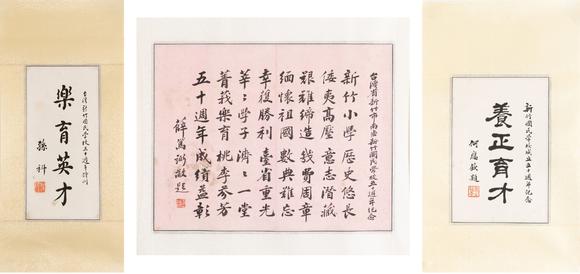 台灣新竹國民学校五十週年特刊
樂育英才
孫科
台灣省新竹市南區新竹國民学校五十週年紀念
新竹小學歷史悠長
倭夷高壓意志潛藏
艱難締造幾費周章
緬懷祖國數典難忘
幸復勝利臺省重光
莘〻學子濟〻一堂
菁莪樂育桃李芬芳
五十週年成績益彰
薛篤弼敬題
新竹國民学校成立五十週年紀念
養正育才
何應欽題